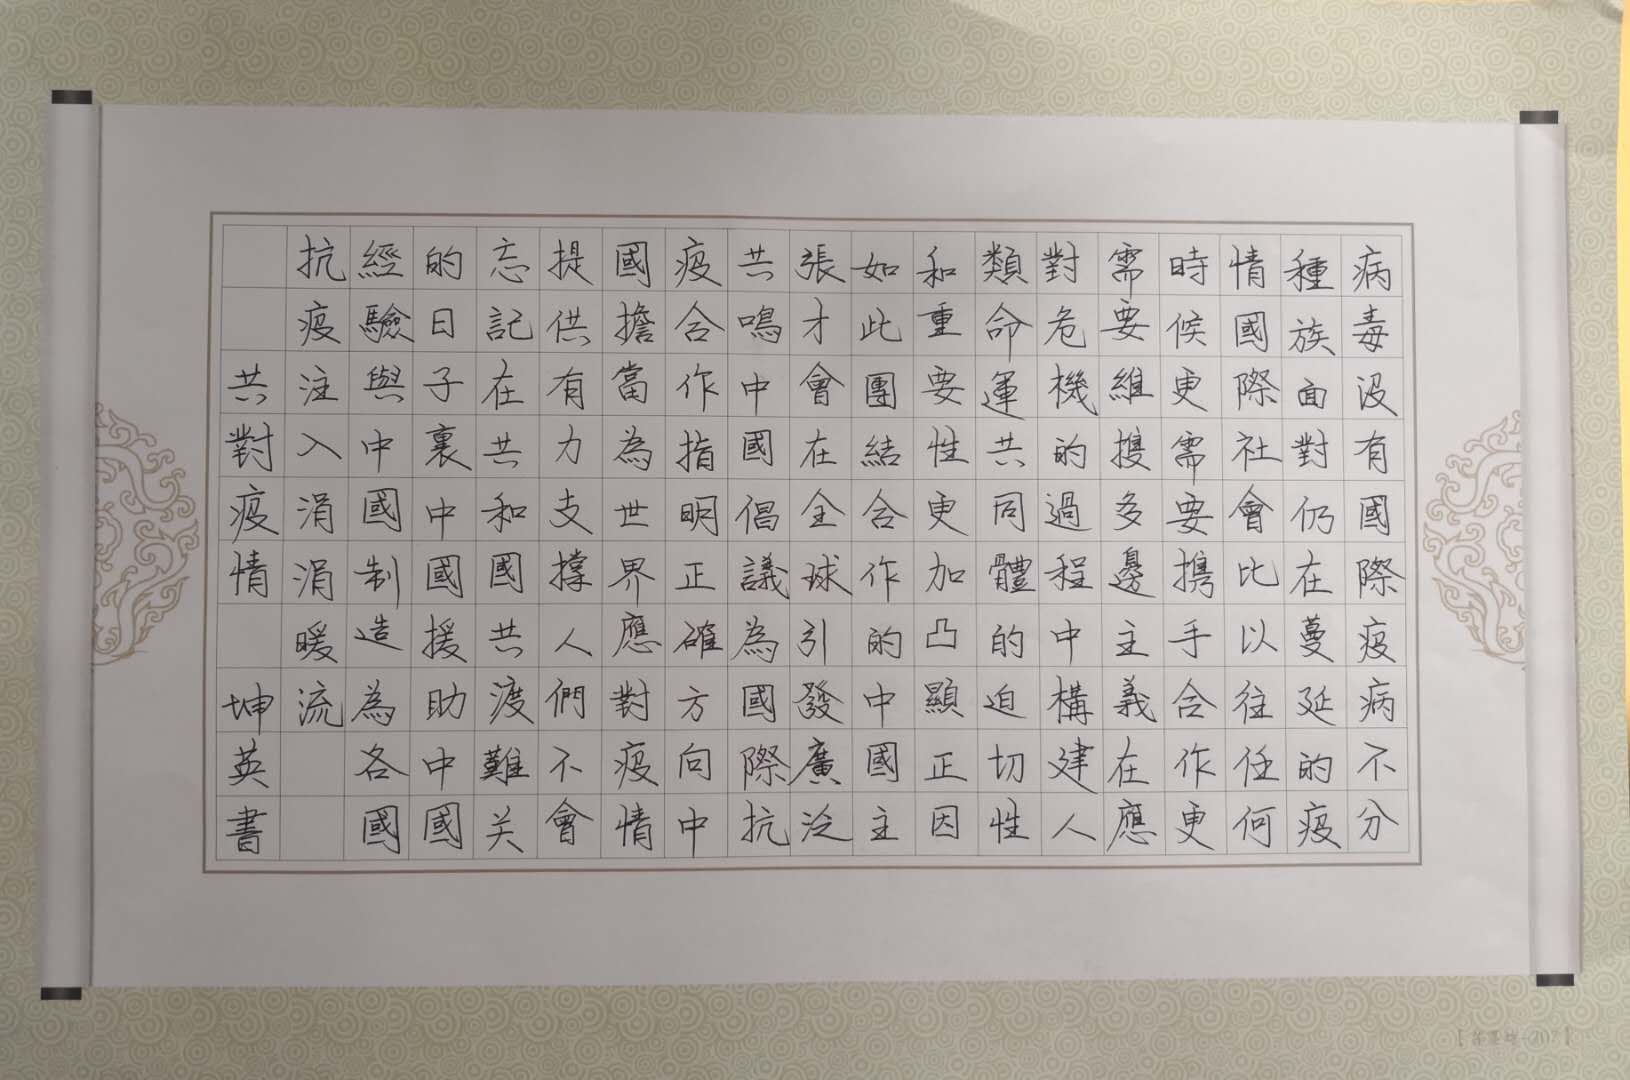 病毒沒有國際疫病不分
種族面對仍在蔓延的疫
情國際社會比以往任何
時候更需要携手合作更
需要維護多邊主義在應
對危機的過程中構建人
類命運共同體的迫切性
和重要性更加凸顯正因
如此團結合作的中國主
張才會在全球引發廣泛
共鳴中國倡議為國際抗
疫合作指明正確方向中
國擔當為世界應對疫情
提供有力支撐人們不會
忘記在共和國共渡難关
的日子裏中國援助中國
經驗與中國制造為各國
抗疫注入涓涓暖流
共對疫情 坤英書